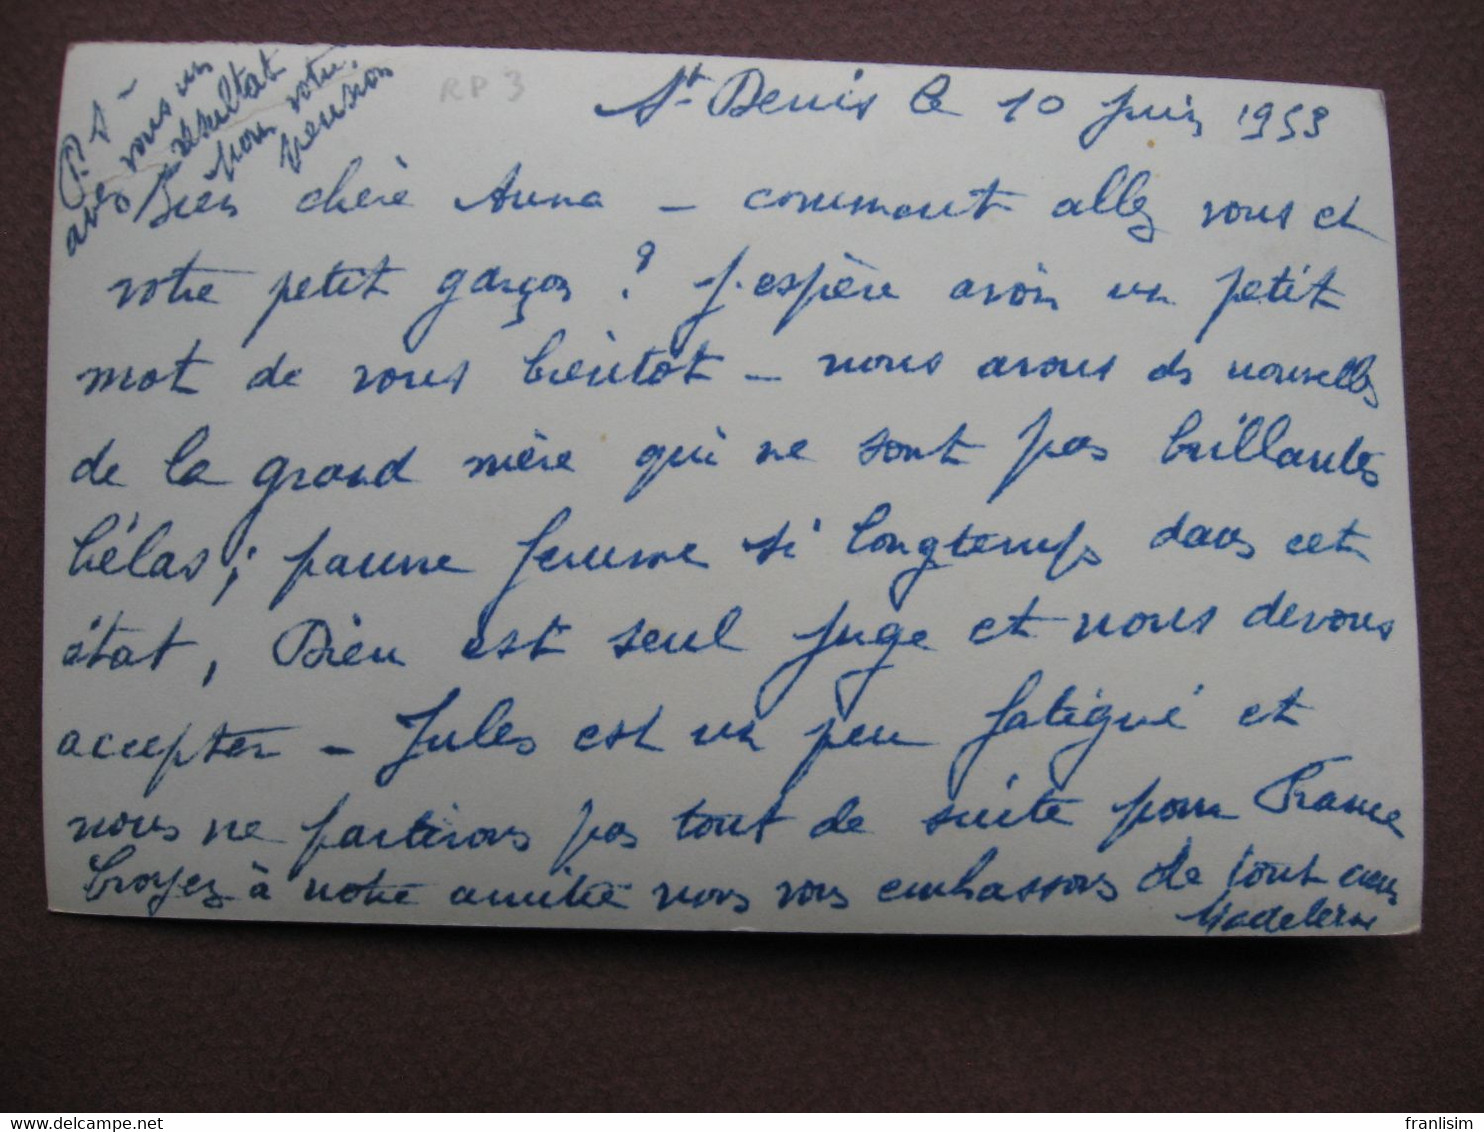 RP 3
St Denis le 10 juin 1953
P.S -
avez vous un
résultat
pour votre
pension
Bien chère Anna - comment allez vous et
votre petit garçon ? J'espère avoir un petit
mot de vous bientôt - nous avons des nouvelles
de la grand mère qui ne sont pas brillantes
hélas ; pauvre femme si longtemps dans cet
état, Dieu est seul juge et nous devons
accepter - Jules est un peu fatigué et
nous ne partirons pas tout de suite pour France
Croyez à notre amitié nous vous embrassons de tout cœur
Madeleine
franlisim